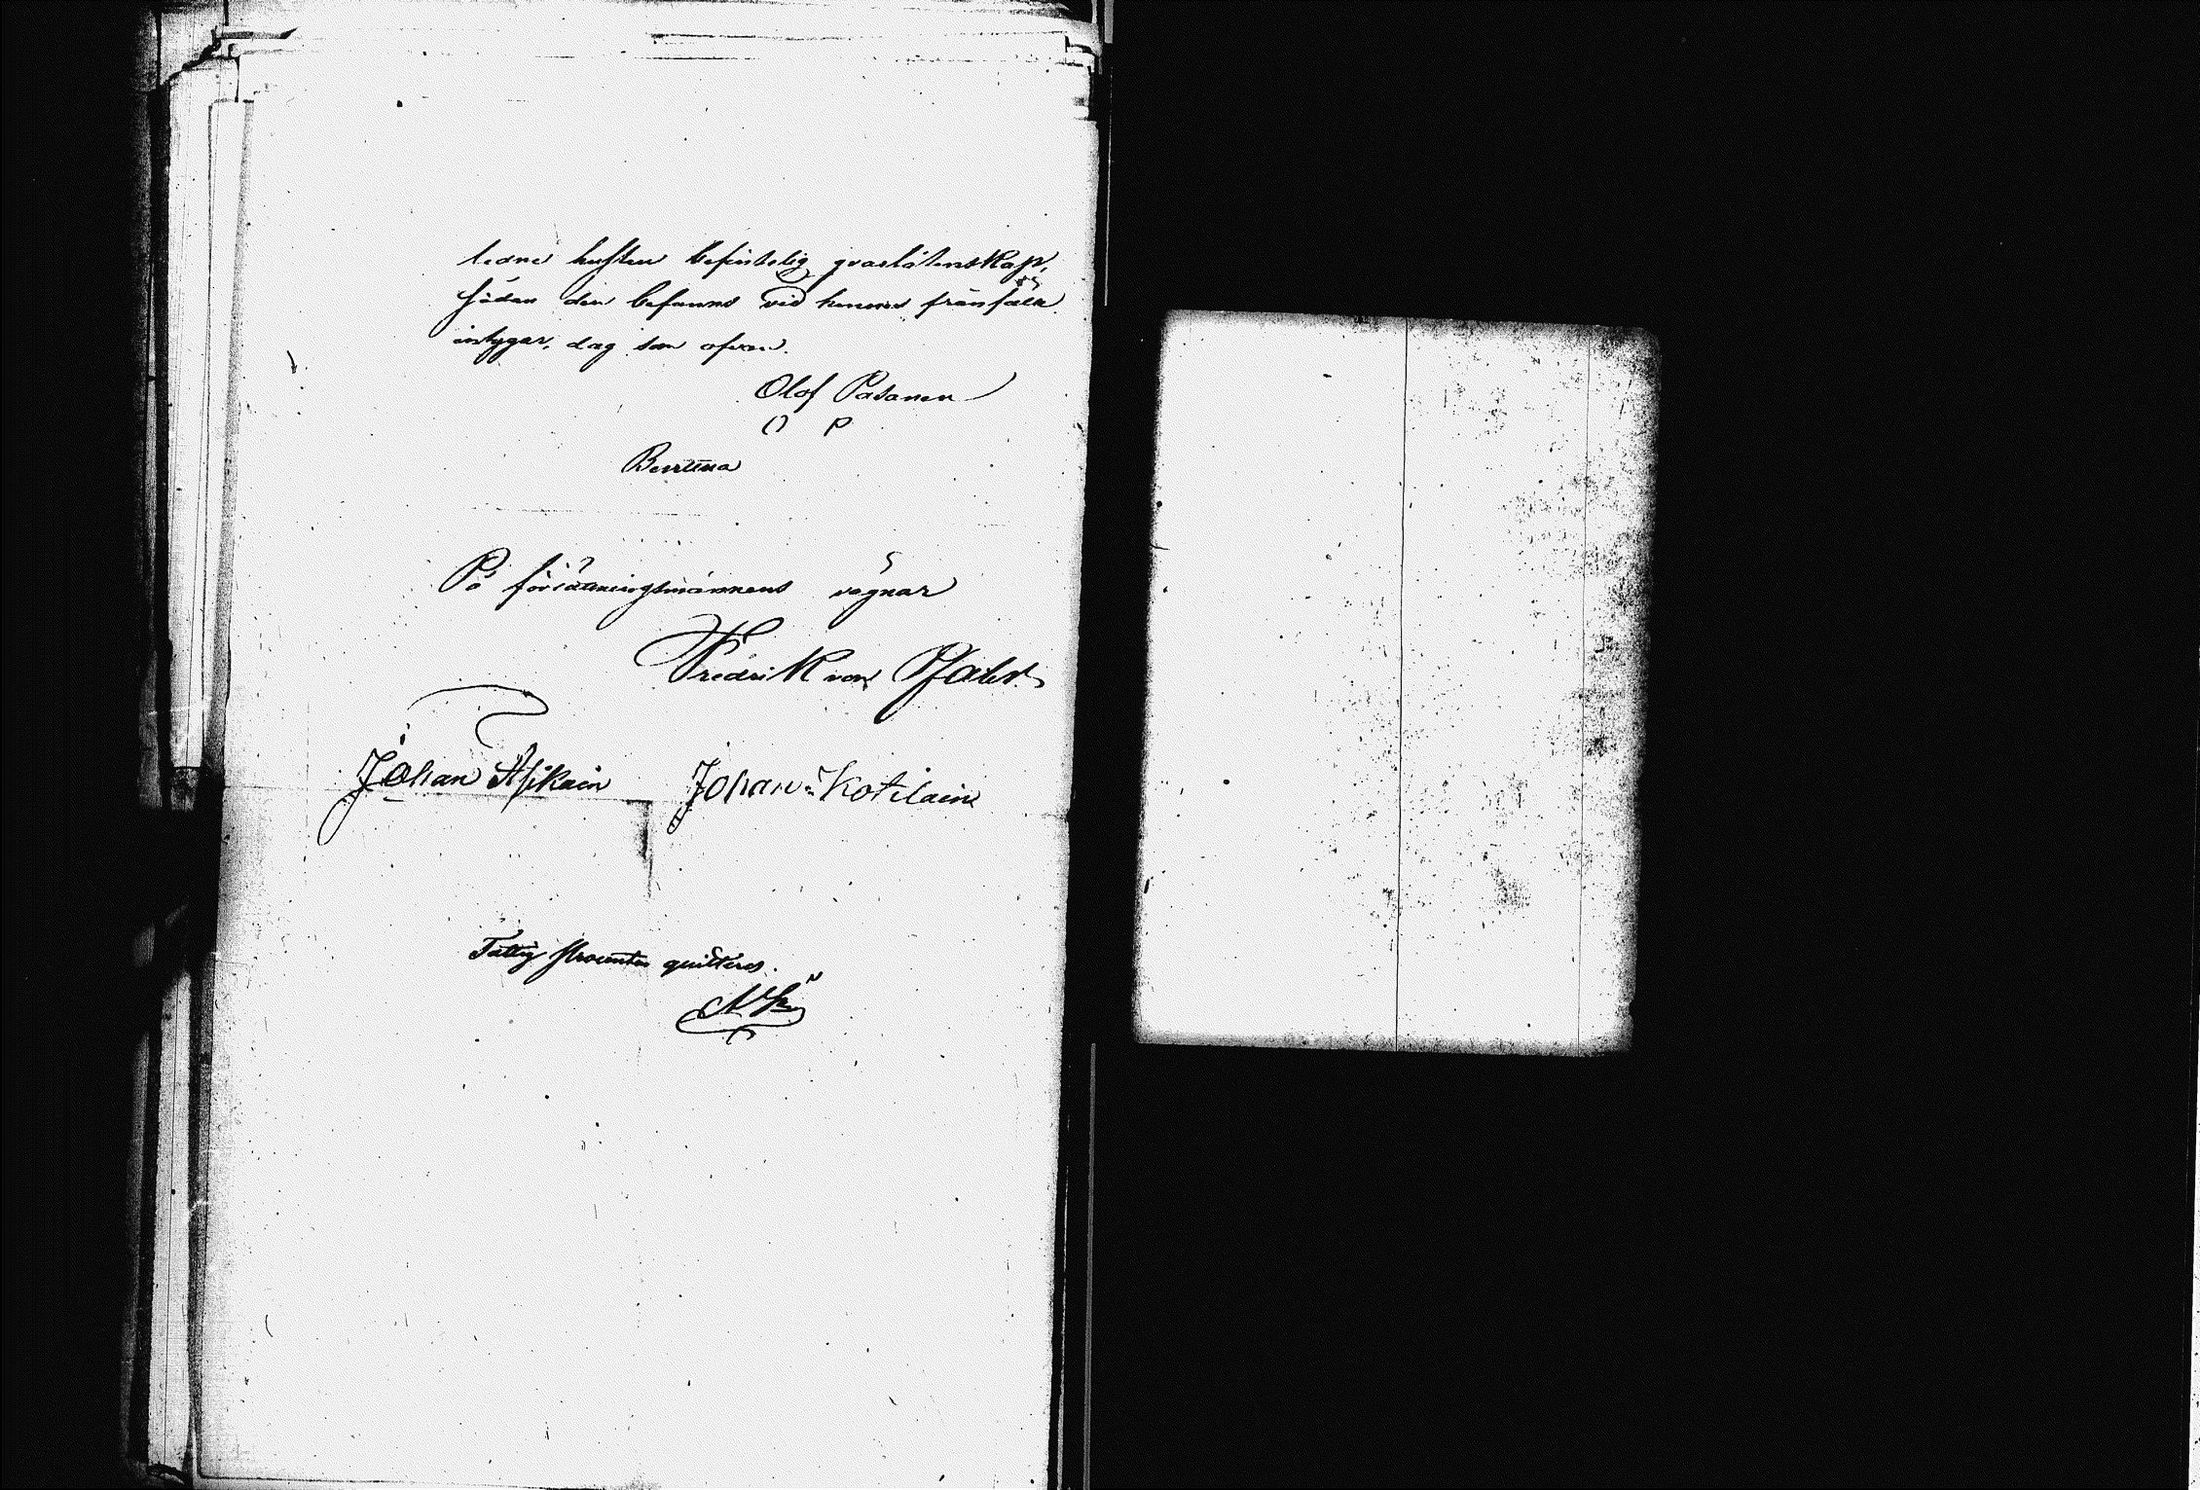 ledne hustru befintelig qvarlåtenskap,
sådan den befanns vid hennes frånfälle
intygar, dag som ofvan.
Olof Pasanen
O P
Bevittna
På förrättningsmännens vägnar
Fredrik von Pfaler
Johan Asikain Johan Kotilain
Fattig procenten quitteras.